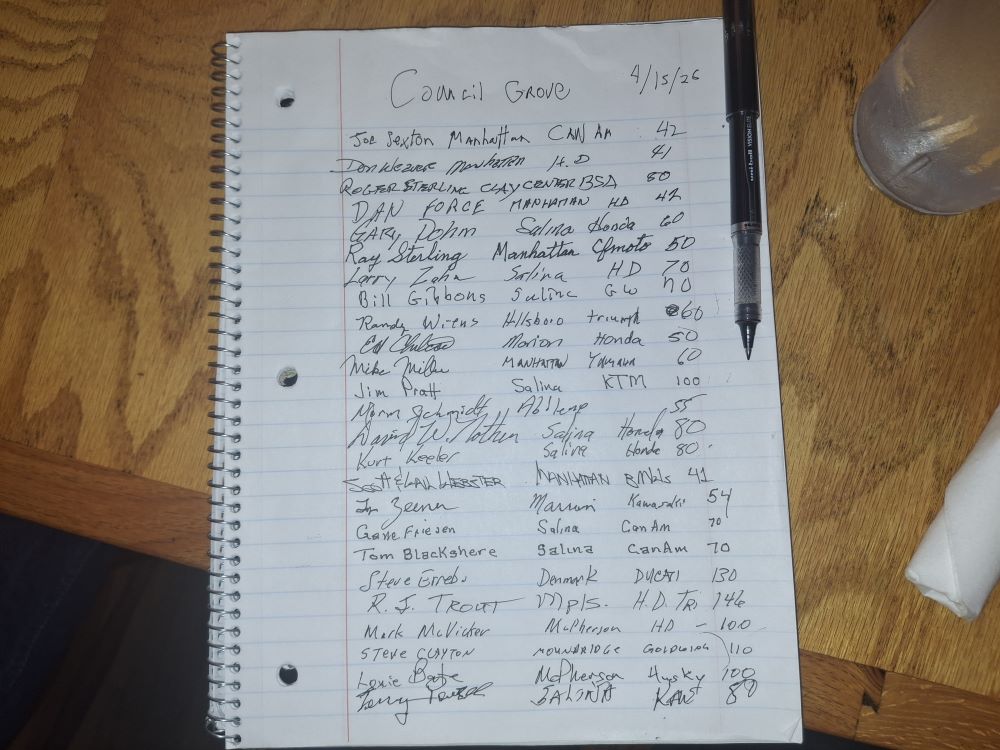 Council Grove 4/15/26
Joe Sexton Manhattan CAN AM 42
Don Weixee Manhattan H.D 41
ROGER STERLING CLAY CENTER BSA 80
DAN FORCE MANHATTAN HD 42
GARY Dohm Salina Honda 60
Ray Sterling Manhattan Cfmoto 50
Larry Zahn Salina HD 70
Bill Gibbons Salina GW 70
Randy Wiens Hillsboro triumph 60
Ed Marion Honda 50
Mike Miller MANHATTAN YAMAHA 60
Jim Pratt Salina KTM 100
Norm Schmidt Abilene 55
David W. Salina Honda 80
Kurt Keeler Salina Honda 80
Scott & WEBSTER MANHATTAN 41
Zeener Marion Kawasaki 54
Gane Friesen Salina CanAm 70
Tom Blackshere Salina CanAm 70
Steve Errebo Denmark DUCATI 130
R. J. TROUT Mpls. H.D. TRI 146
Mark McVicker McPherson HD - 100
STEVE CLAYTON MOUNDRIDGE GOLDWING 110
Louie McPherson Husky 100
Terry SALINA KAW 80